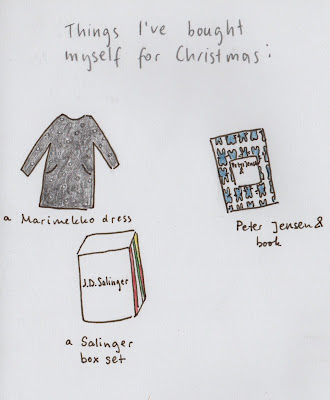 Things I've bought
myself for Christmas:
Peter Jensen
&
a Marimekko dress
Peter Jensen &
book
J.D. Salinger
a Salinger
box set